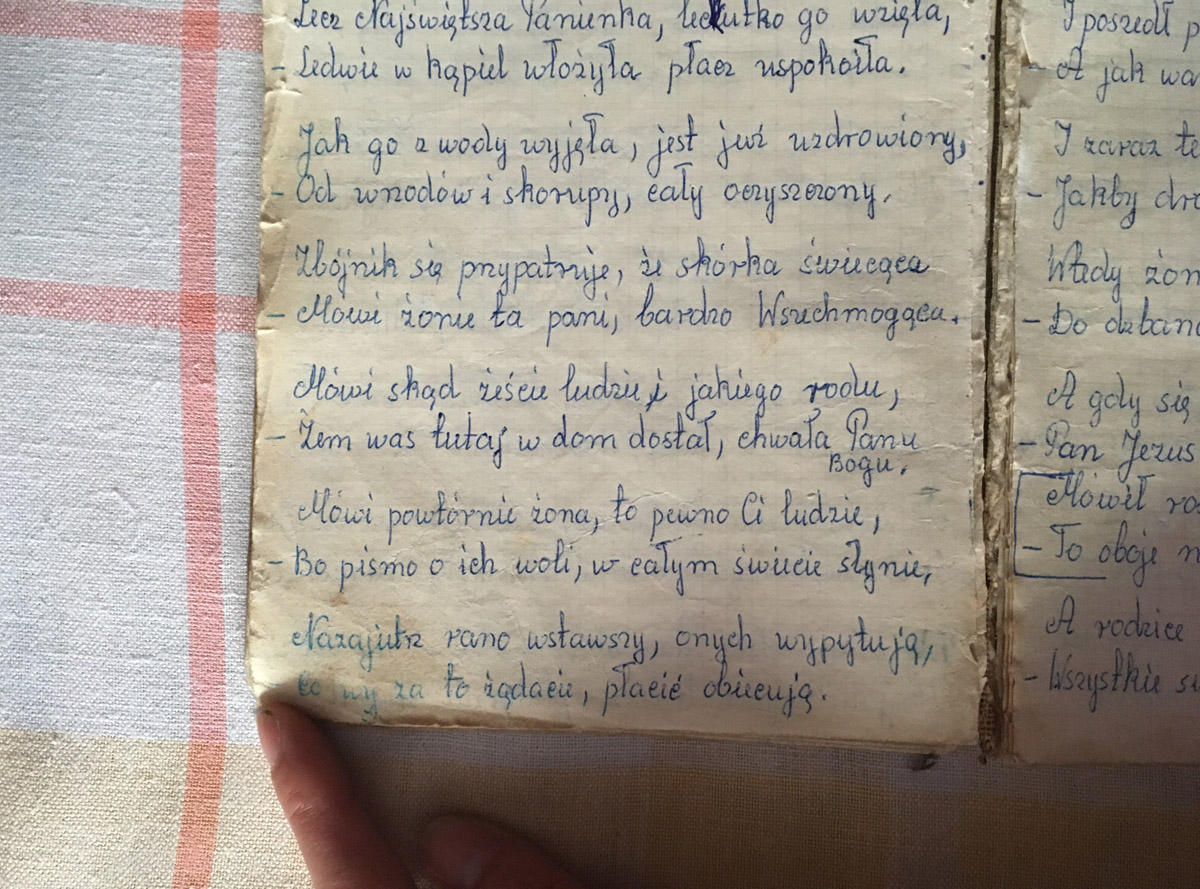 Lecz Najświętsza Panienka, leciutko go wzięła,
- Ledwie w kąpiel włożyła płacz uspokoiła.
Jak go z wody wyjęła, jest już uzdrowiony,
- Od wrzodów i skorupy, cały oczyszczony.
Zbójnik się przypatruje, że skórka świecąca
- Mówi żonie ta pani, bardzo Wszechmogąca.
Mówi skąd żeście ludzie i jakiego rodu,
- Żem was tutaj w dom dostał, chwała Panu
Bogu.
Mówi powtórnie żona, to pewno Ci ludzie,
- Bo pismo o ich woli, w całym świecie słynie,
Nazajutrz rano wstawszy, onych wypytują,
- Co wy za to żądacie, płacić obiecują.
I poszedł
- A jak
I zaraz
- Jakby
Wtedy
- Do dzbana
A gdy się
- Pan Jezus
Mówił
- To oboje
A rodzice
- Wszystkie